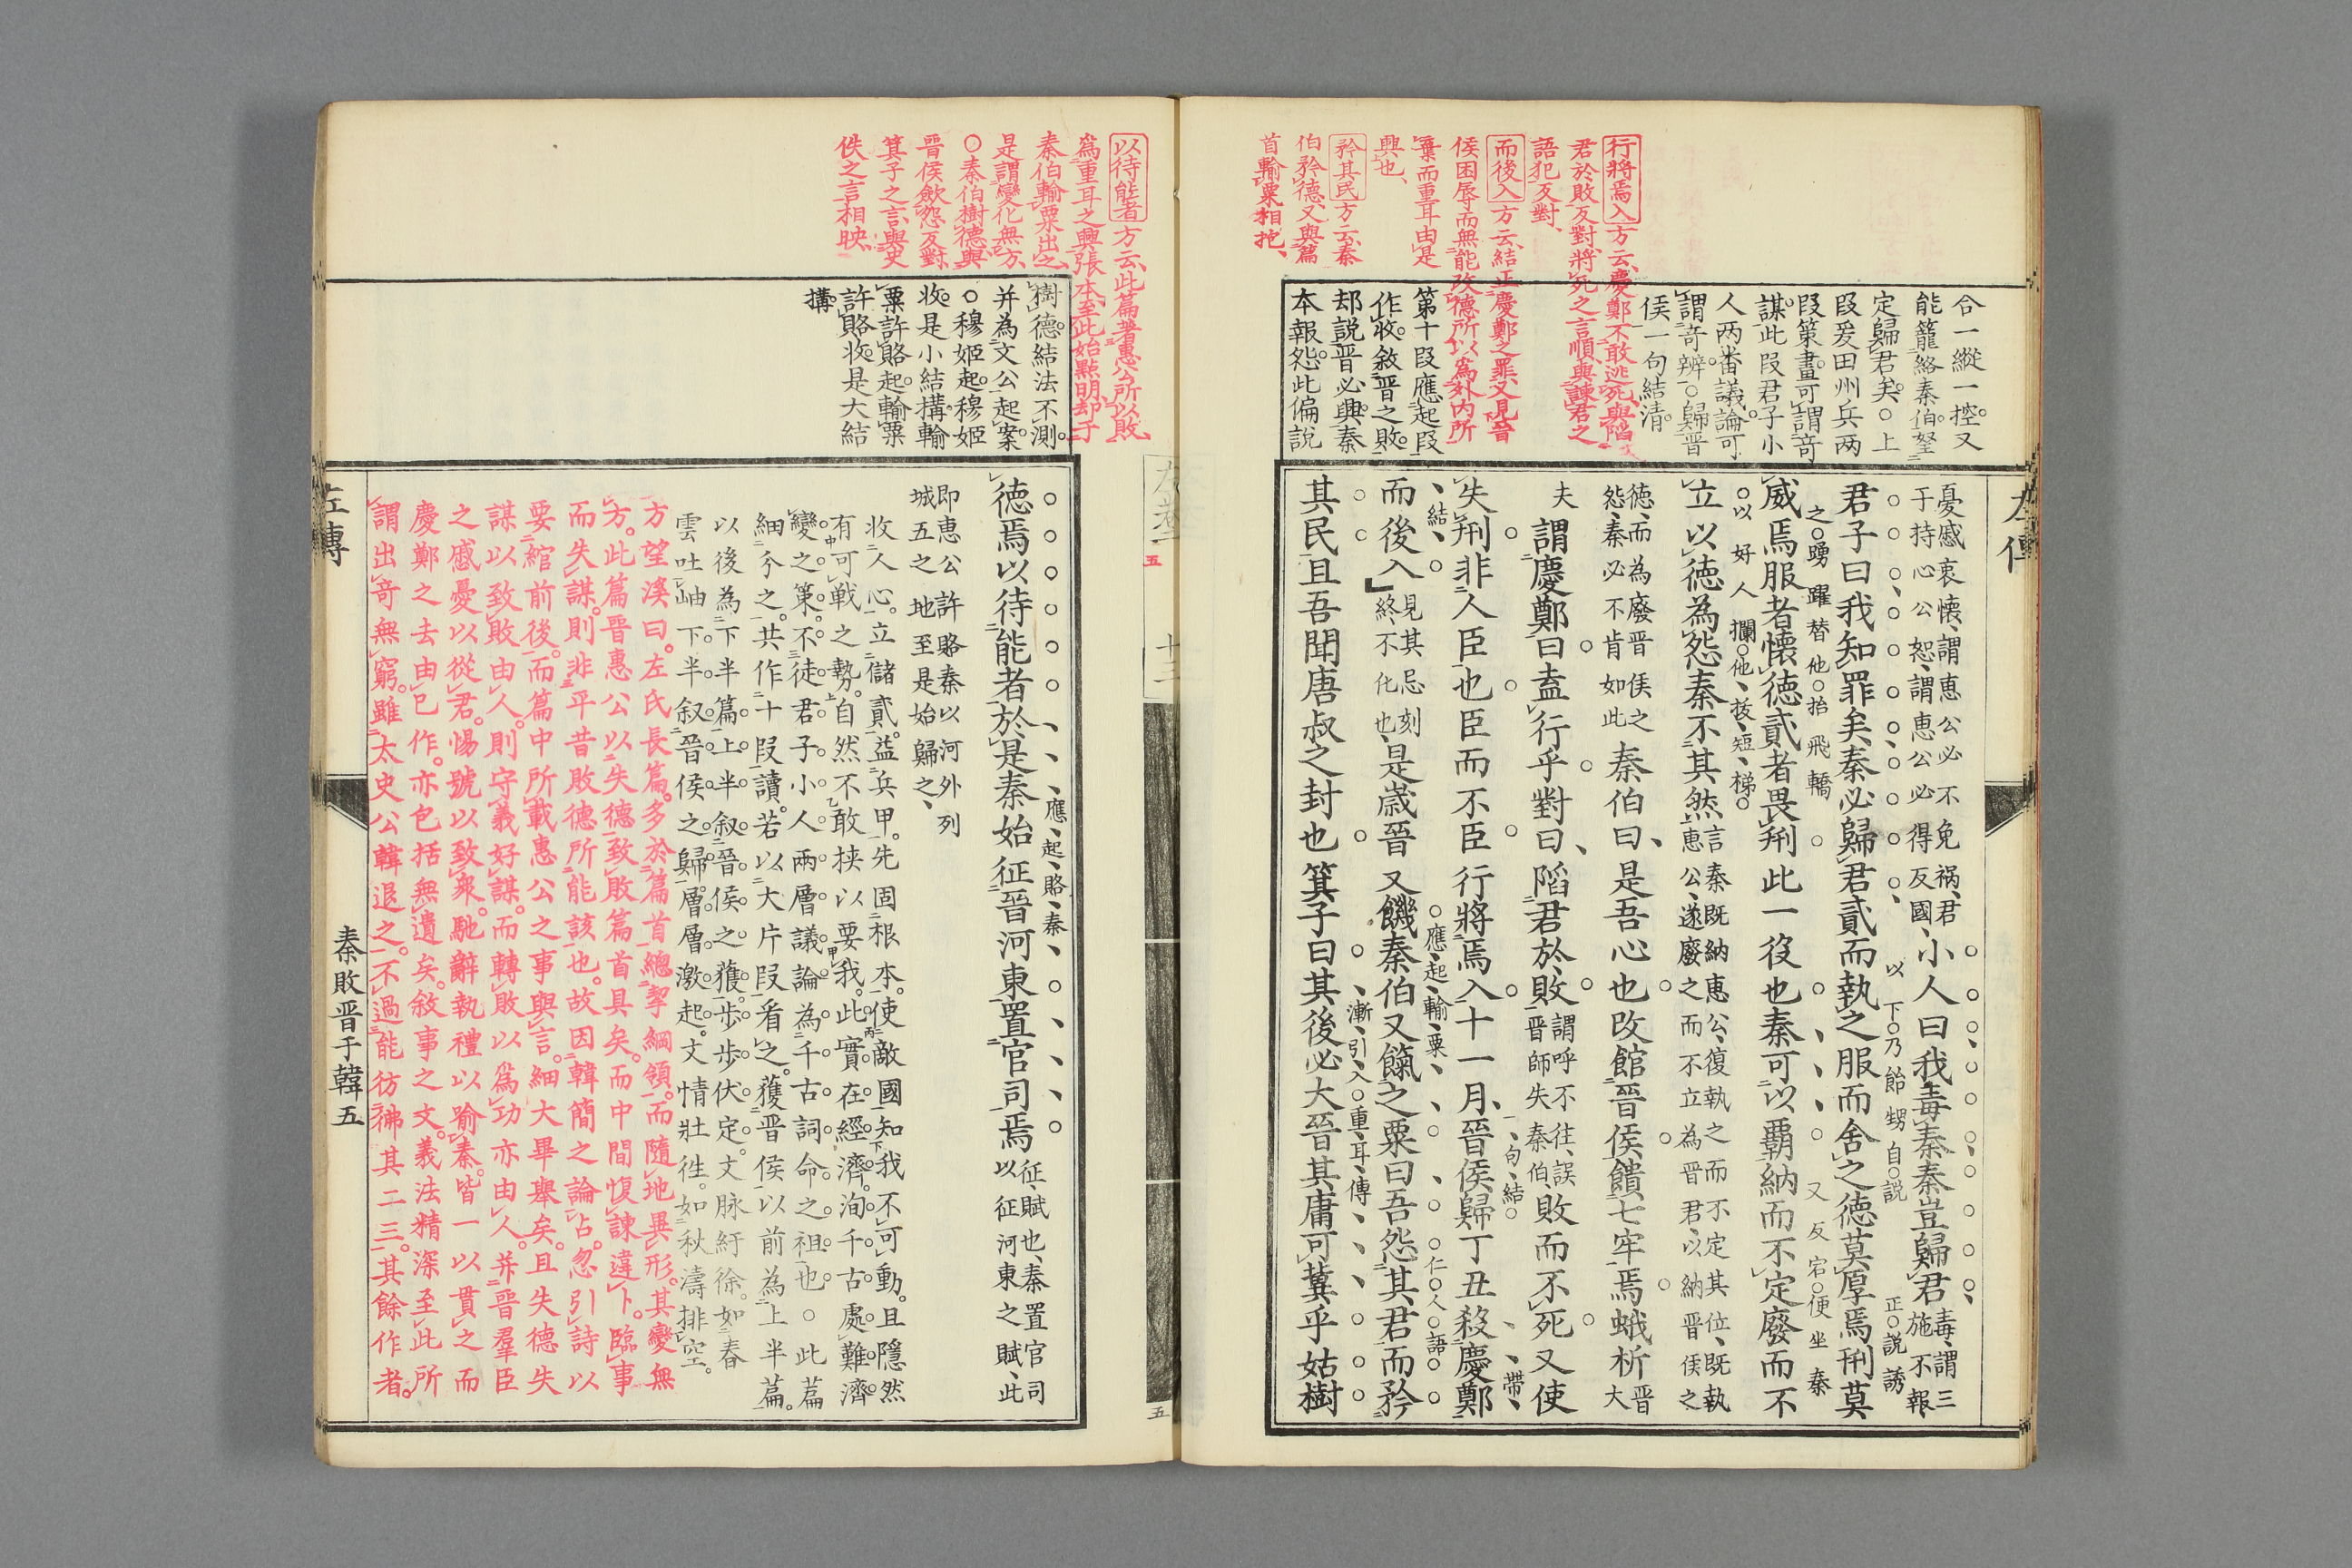 行將焉入方云、慶鄭不敢逃死、與陷
君於敗反對、將死之言順、與諫君之
語犯反對、
而後入方云、結正慶鄭之罪、又見晉
侯困辱而無能改德、所以爲外內所
棄而重耳由是
興也、
矜其民方云、秦
伯矜德、又與篇
首輸粟相抱、
合一縱一控。又
能籠絡秦伯。堅
定歸君矣。○上
段爰田州兵兩
段策畫。可謂奇
謀。此段君子小
人兩番議論。可
謂奇辨。○歸晉
侯一句結清。
第十段應起段
作收。敘晉之敗。
却說晉必興。秦
本報怨。此偏說
左傳
憂慼衷懷、謂惠公必不免禍、君
于持心公恕、謂惠公必得反國、
小人曰我毒秦秦豈歸君
毒、謂三
施不報
以下乃飴甥自說
正說誘
君子曰我知罪矣秦必歸君貳而執之服而舍之德莫厚焉刑莫
之踴躍替他抬飛轎
又反宕便坐秦
威焉服者懷德貳者畏刑此一役也秦可以霸納而不定廢而不
以好人攔他、拔短梯
立以德為怨秦不其然
言秦既納惠公、復執之而不定其位、既執
惠公、遂廢之而不立為晉君、以納晉侯之
德、而為廢晉侯之
怨、秦必不肯如此
秦伯曰是吾心也改館晉侯饋七牢焉蛾析
晉
大
夫
謂慶鄭曰盍行乎對曰陷君於敗
謂呼不往、誤
晉師失秦伯、
敗而不死又使
失刑非人臣也臣而不臣行將焉入十一月晉侯歸丁丑殺慶鄭
一句結
帶
結
而後入
見其忌刻
終不化也、
是歲晉又饑秦伯又餼之粟曰吾怨其君而矜
應起輸粟
仁人語
其民且吾聞唐叔之封也箕子曰其後必大晉其庸可冀乎姑樹
漸引入重耳傳
以待能者方云、此篇著惠公所以敗、
爲重耳之興張本、至此始點明、却于
秦伯輸粟出之、
是謂變化無方、
○秦伯樹德、與
晉侯歛怨反對、
箕子之言、與史
佚之言相映、
樹德結法不測。
并為文公起案。
○穆姬起。穆姬
收。是小結搆。輸
粟許賂起。輸粟
許賂收。是大結
搆。
德焉以待能者於是秦始征晉河東置官司焉
應起賂秦
征、賦也、秦置官司
以征河東之賦、此
即惠公許賂秦以河外列
城五之地至是始歸之、
收人心。立儲貳。益兵甲。先固根本。使敵國知我不可動。且隱然
有可戰之勢。自然不敢挾以要我。此實在經濟。洵千古處難濟
變之策。不徒君子小人兩層議論。為千古詞命之祖也。○此篇
細分之。共作十段讀。若以大片段看之。獲晉侯以前為上半篇。
以後為下半篇。上半敘晉侯之獲。步步伏定。文脉紆徐。如春
雲吐岫。下半敘晉侯之歸。層層激起。文情壯往。如秋濤排空。
方望溪曰。左氏長篇。多於篇首總挈綱領。而隨地異形。其變無
方。此篇晉惠公以失德致敗。篇首具矣。而中間愎諫違卜。臨事
而失謀。則非平昔敗德所能該也。故因韓簡之論占。忽引詩以
要綰前後。而篇中所載惠公之事與言。細大畢舉矣。且失德失
謀以致敗由人。則守義好謀。而轉敗以爲功亦由人。并晉羣臣
之慼憂以從君。惕號以致衆。馳辭執禮以喻秦。皆一以貫之而
慶鄭之去由已作。亦包括無遺矣。敘事之文。義法精深至此。所
謂出奇無窮。雖太史公韓退之。不過能彷彿其二三。其餘作者。
左傳
秦敗晉于韓五